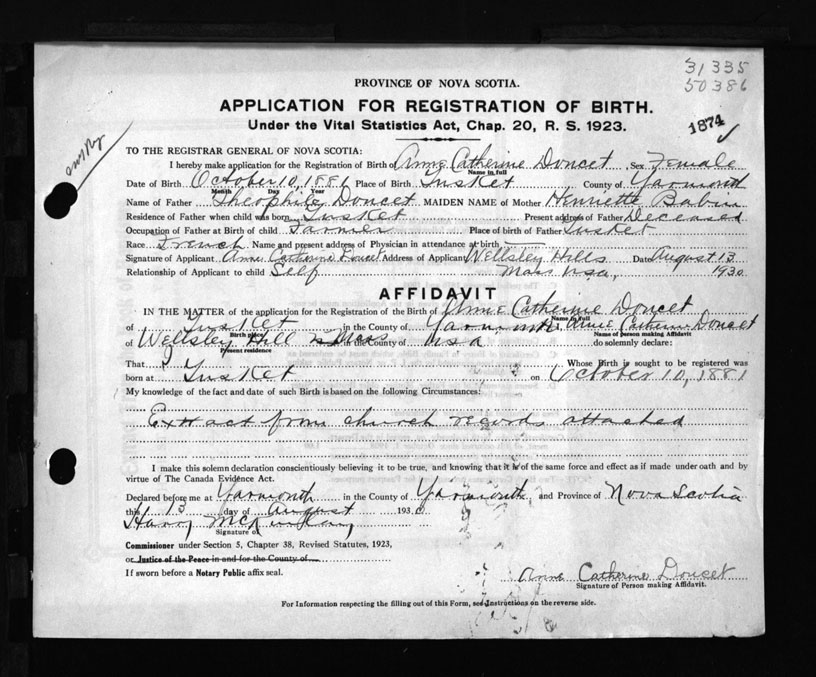 31335
50386
PROVINCE OF NOVA SCOTIA.
APPLICATION FOR REGISTRATION OF BIRTH.
Under the Vital Statistics Act, Chap. 20, R. S. 1923.
1874
TO THE REGISTRAR GENERAL OF NOVA SCOTIA:
I hereby make application for the Registration of Birth of Anne Catherine Doncet Sex Female
Name in full
Date of Birth October 10, 1881 Place of Birth Tusket County of Yarmouth
Month Day Year
Name of Father Theophile Doncet MAIDEN NAME of Mother Henriette Babin
Residence of Father when child was born Tusket Present address of Father Deceased
Occupation of Father at Birth of child Farmer Place of birth of Father Tusket
Race French Name and present address of Physician in attendance at birth —
Signature of Applicant Anne Catherine Doucet Address of Applicant Wellsley Hills Date August 13
Relationship of Applicant to child Self Mass Usa, 1930
AFFIDAVIT
IN THE MATTER of the application for the Registration of the Birth of Anne Catherine Doncet
Name in full
of Tusket in the County of Yarmouth, I, Anne Catherine Doncet
Birth place Name of person making Affidavit
of Wellsley Hill Mass in the County of Usa do solemnly declare:
Present residence
That I Whose Birth is sought to be registered was
born at Tusket on October 10, 1881
My knowledge of the fact and date of such Birth is based on the following Circumstances:
Extract from church records attached
I make this solemn declaration conscientiously believing it to be true, and knowing that it is of the same force and effect as if made under oath and by
virtue of The Canada Evidence Act.
Declared before me at Yarmouth in the County of Yarmouth and Province of Nova Scotia
this 13 day of August 1930
Harry
Signature of
Commissioner under Section 5, Chapter 38, Revised Statutes, 1923,
or Justice of the Peace in and for the County of
If sworn before a Notary Public affix seal.
Anne Catherine Doucet
Signature of Person making Affidavit.
For Information respecting the filling out of this Form, see Instructions on the reverse side.